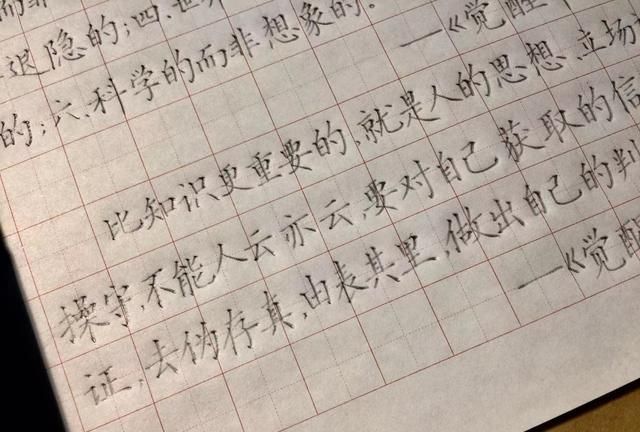 退隐的;四.世
的;六.科学的而非想象的.
——《觉醒
比知识更重要的,就是人的思想、立场
操守,不能人云亦云,要对自己获取的信
证,去伪存真,由表其里,做出自己的判
——《觉醒